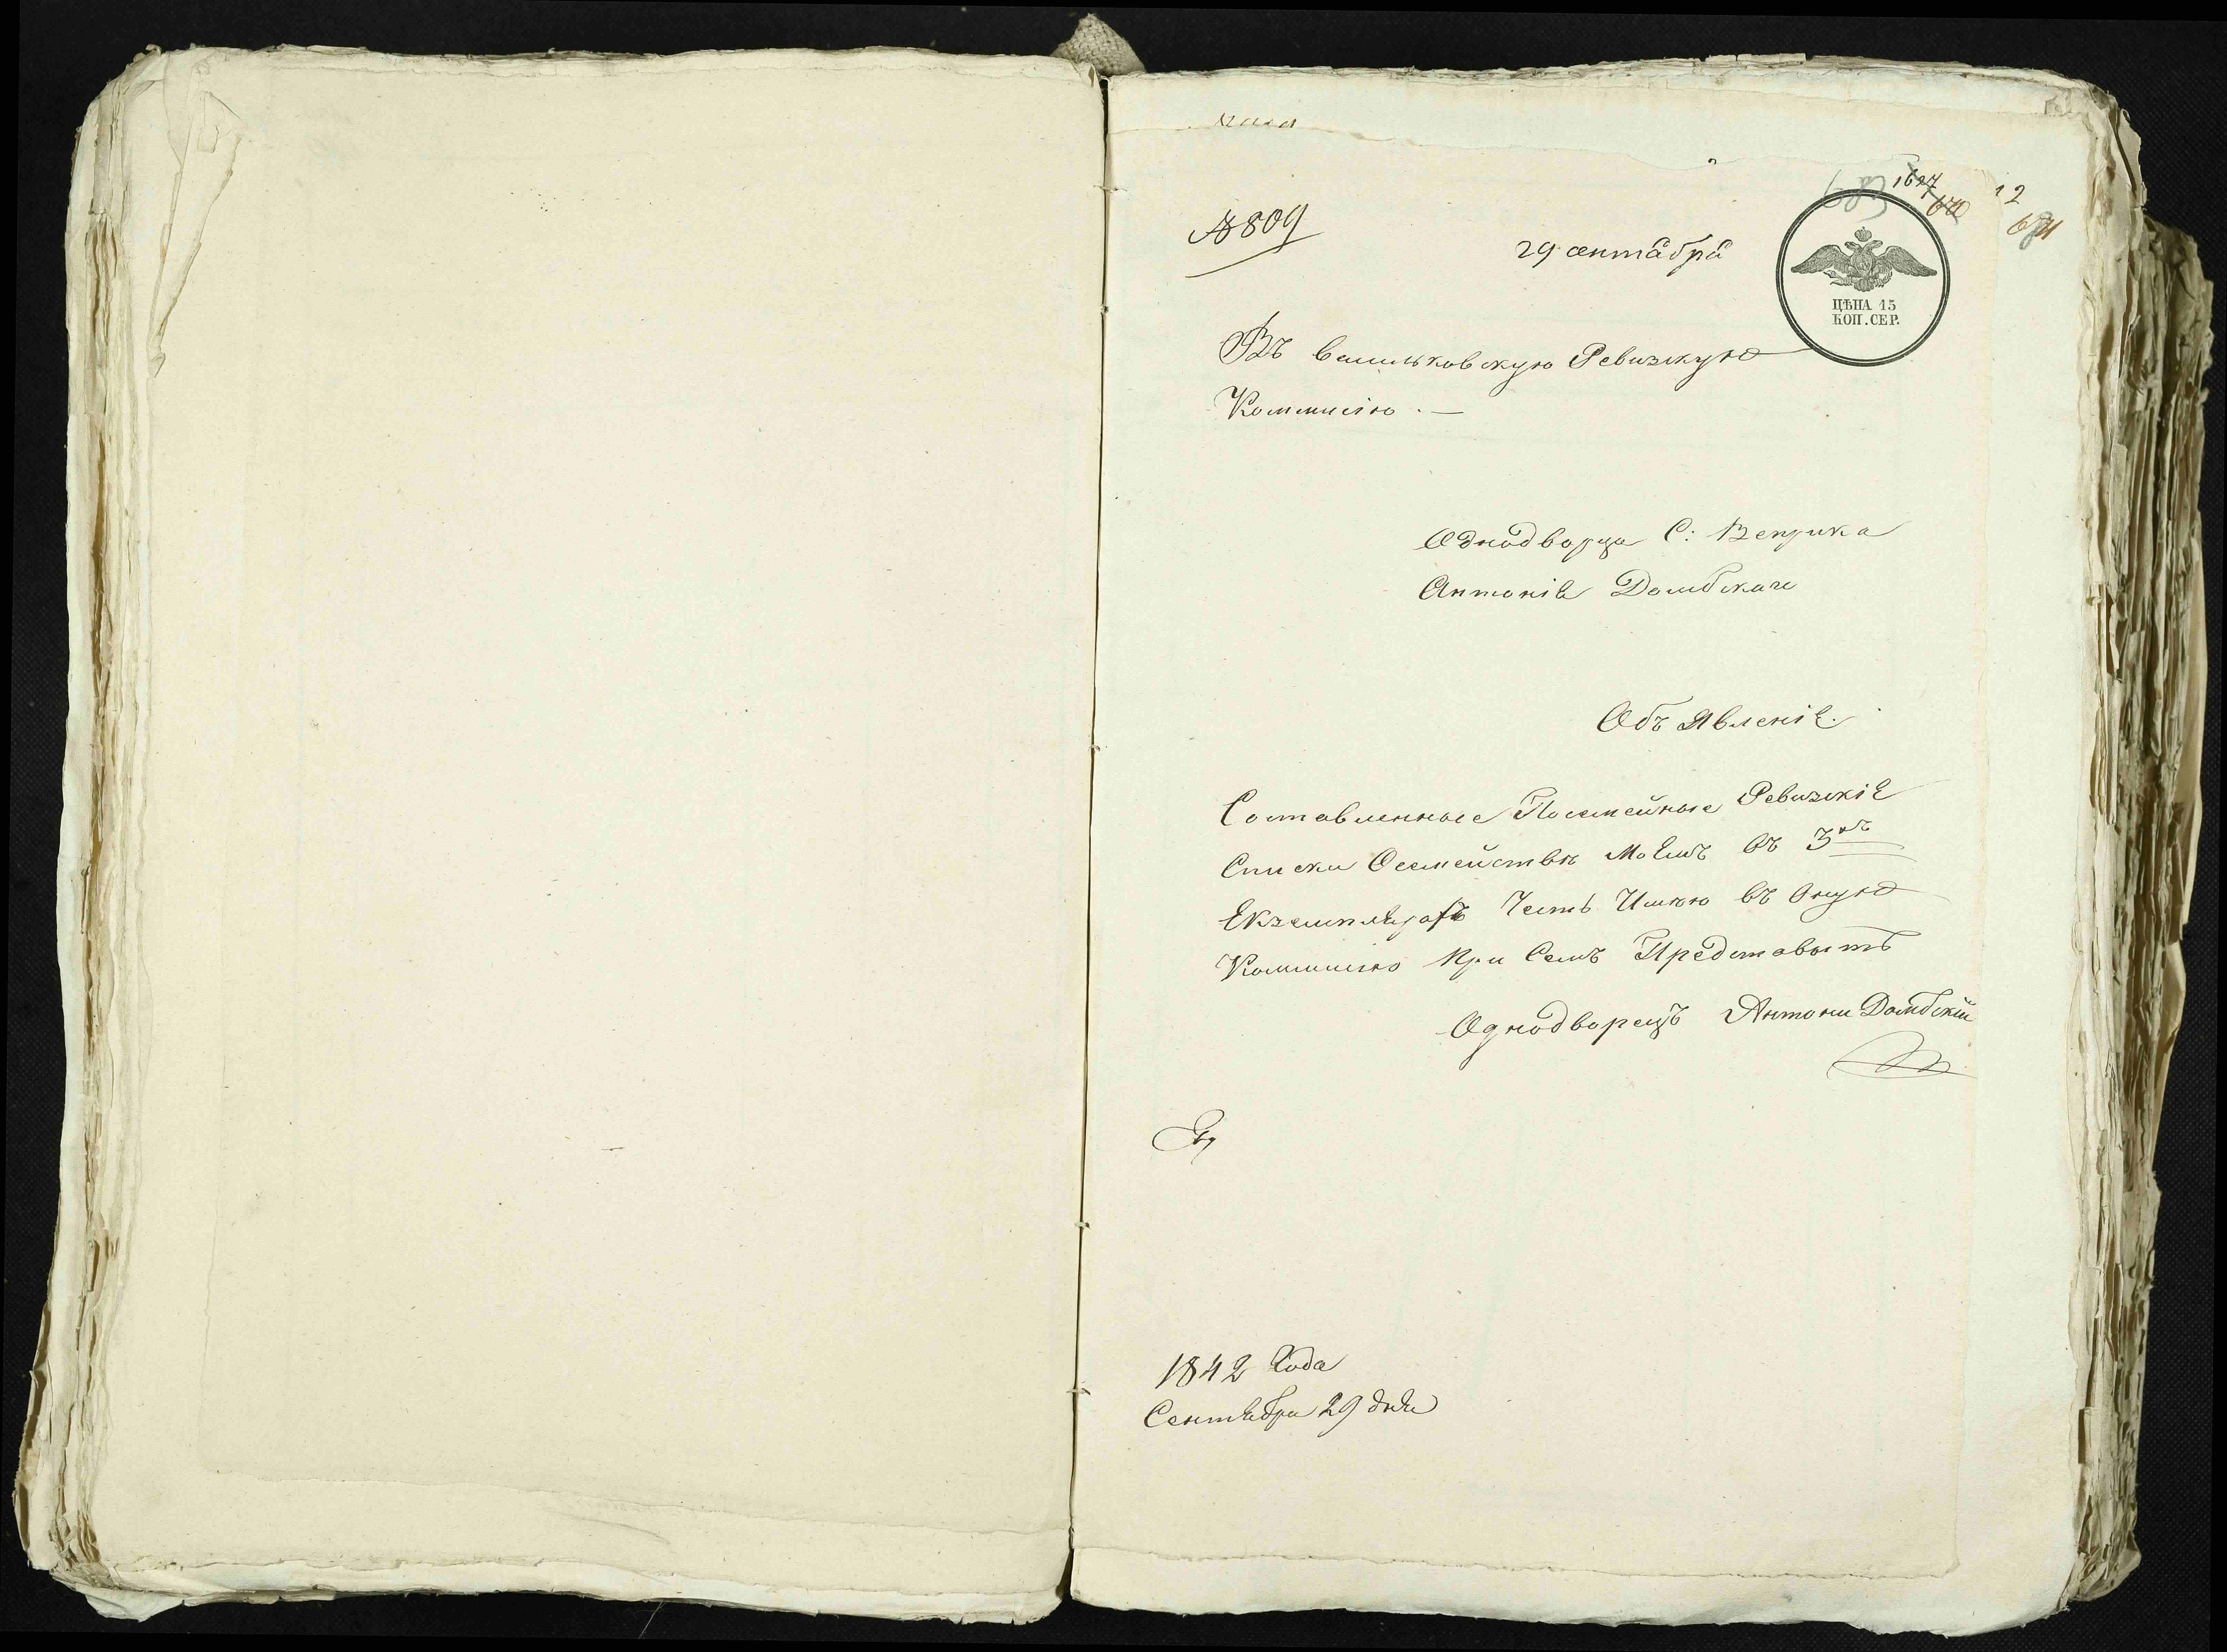 № 809
29 сентября
ЦѢНА 15
КОП. СЕР.
Въ васильковскую Ревизкую
Коммисію. —
Однодворца С: Веприка
Антонія Домбскаго
Объявленіе.
Составленные Посемейные Ревизкіе
Списки Осемействѣ моемъ въ 3хъ
Екземплярахъ Честь Имѣю въ Оную
Коммисію При Семъ Представыть
Однодворецъ Антони Домбскій
1842 Года
Сентября 29 дня